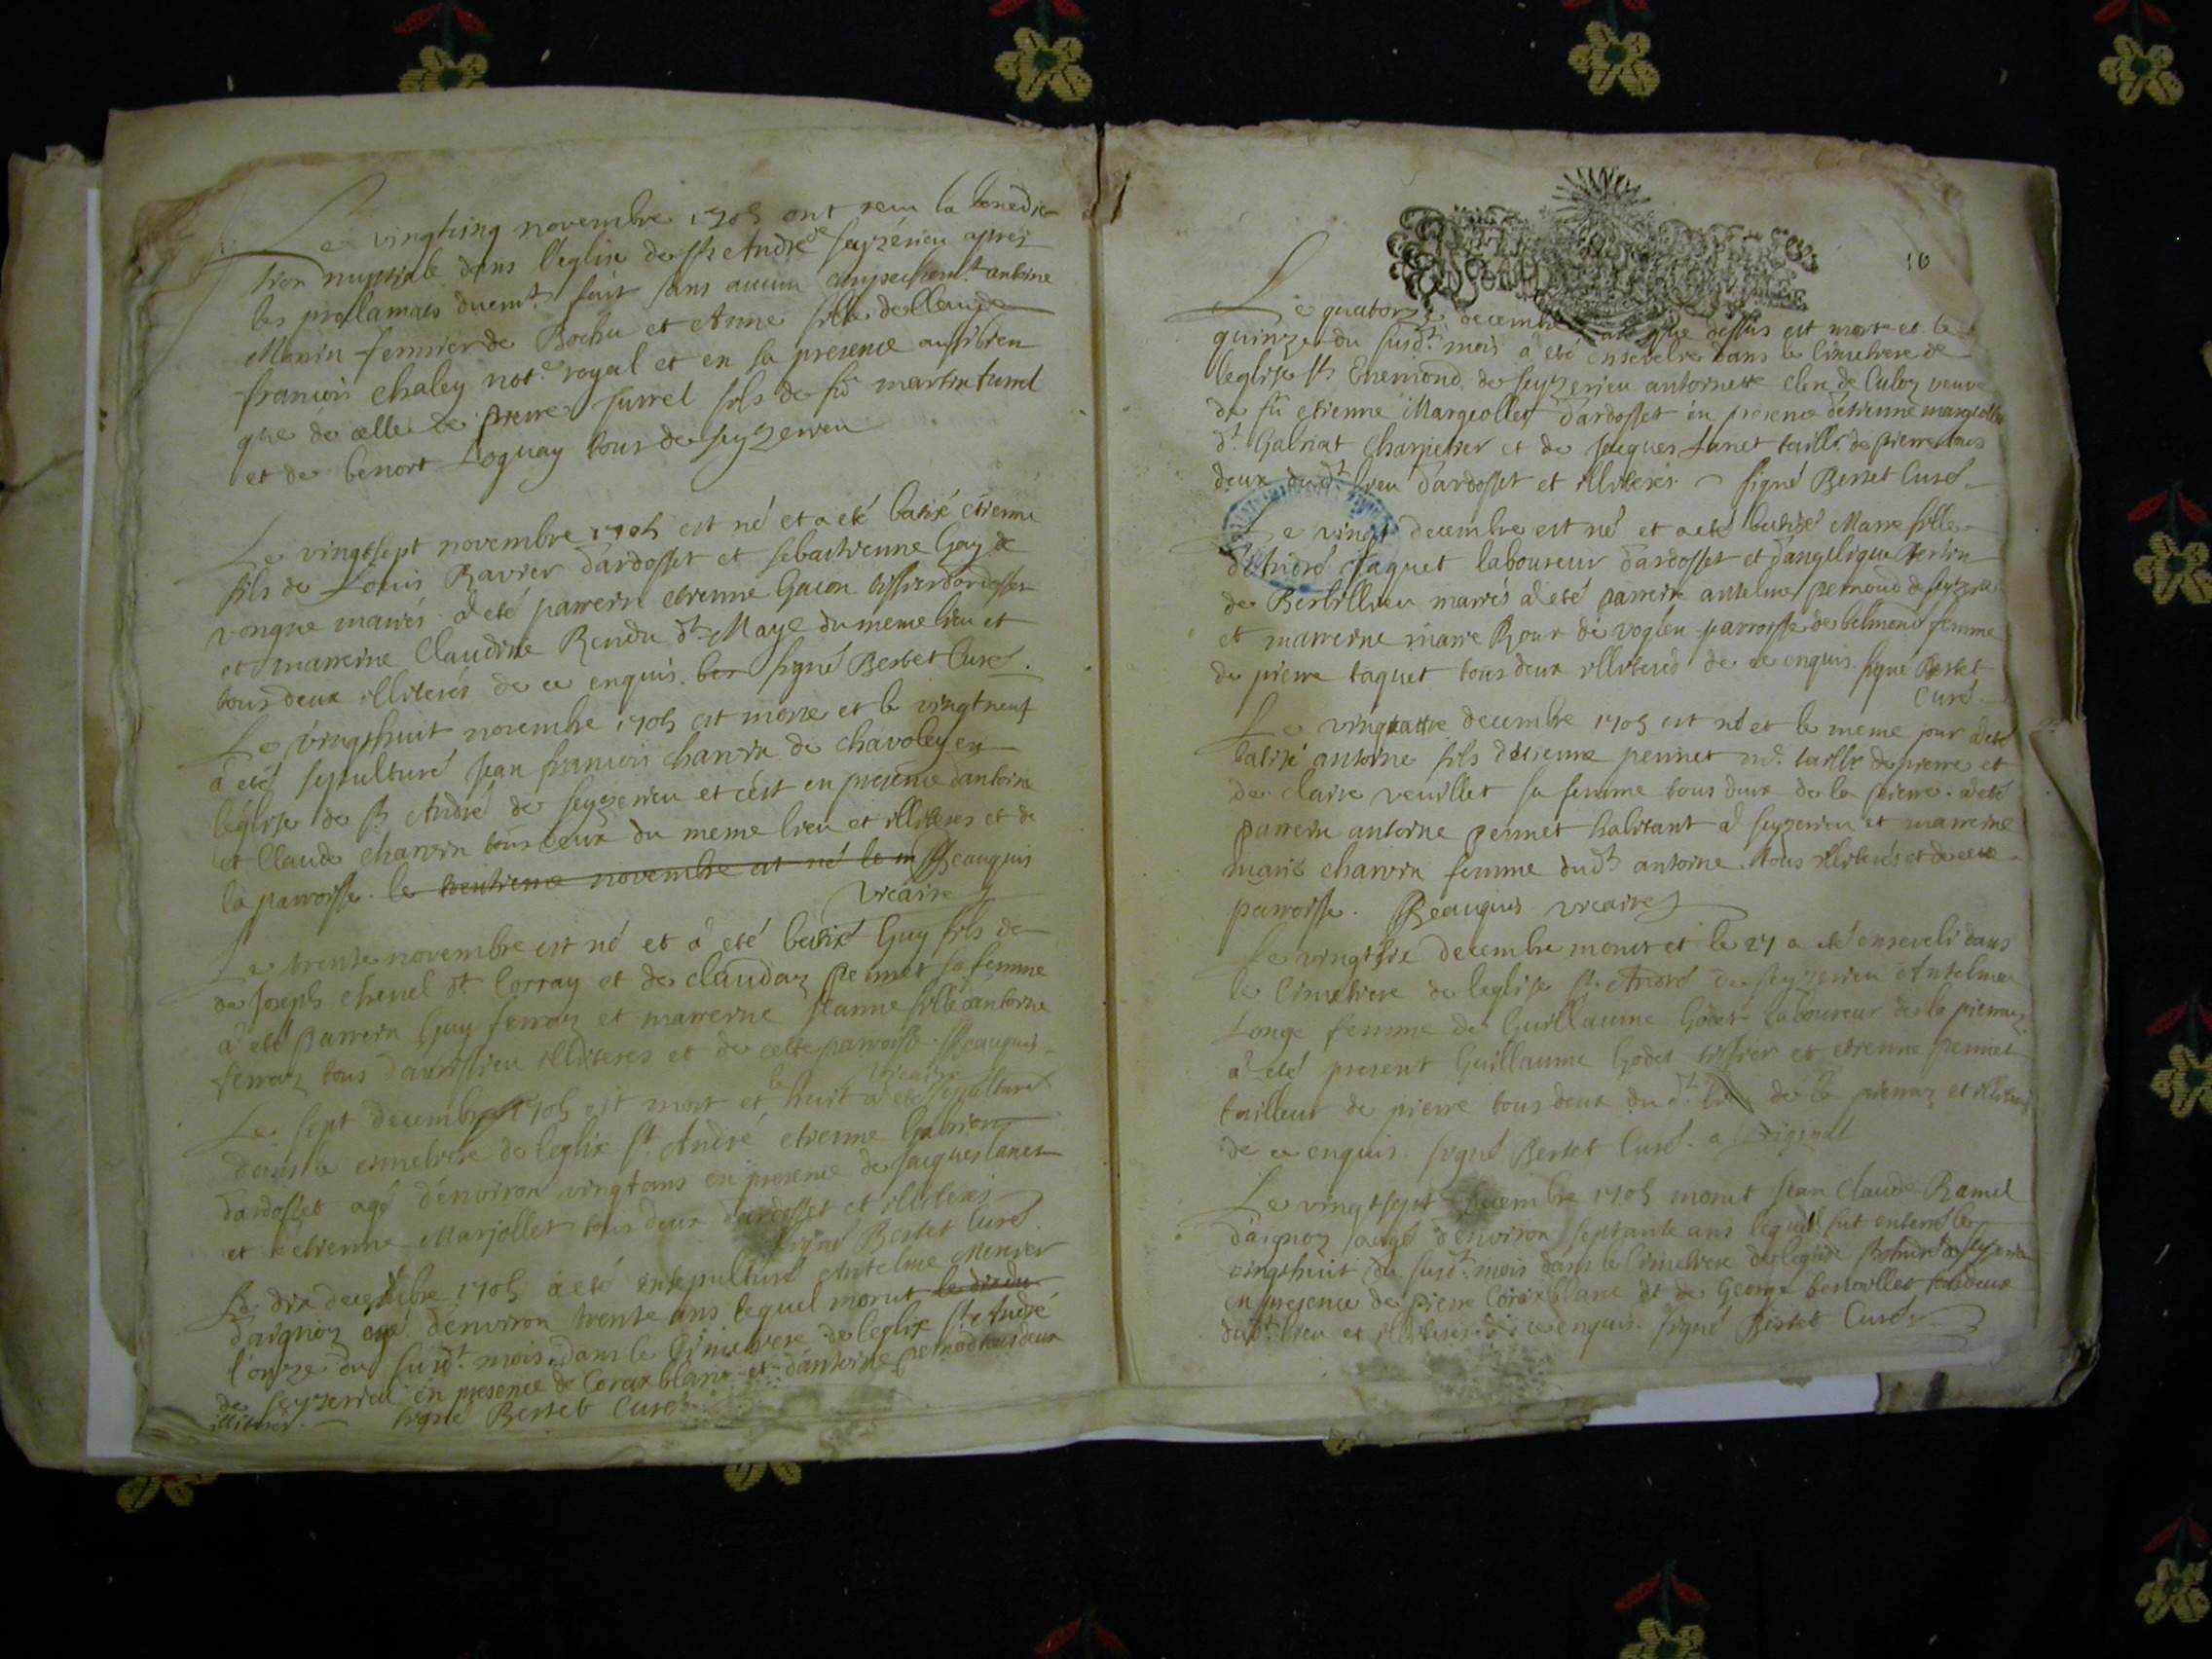 Le vingtcinq novembre 1705 ont receu la benedic
tion nuptiale dans l'eglise de St André de seyzerieu apres
les proclamaõs duemt. fait sans aucun empeschemt. antoine
fermier de Bochu et Anne fille de Claude
francois chaley notre. royal et en sa presence aussibien
que de celle de pierre surrel fils de fû martin surrel
et de benoit Loquay tous de seyzerieu
Le vingtsept novembre 1705 est né et a eté batisé etienne
fils de Loüis Ravier d'ardosset et sebastienne Gay de
vongne mariés. a eté parrein etienne Gacon tissier d'ardosset
et marreine Claudine Rendu dt. Maye du meme lieu et
tous deux illiterés de ce enquis. ber signé Bertet Curé.
Le vingthuit novembre 1705 est morte et le vingtneuf
a eté sepulturé jean francois charvin de chavoley en
l'eglise de St. André de seyzerieu et cést en presence d'antoine
et Claude charvin tous deux du meme lieu et illiteres et de
la parroisse. le trentieme novembre est né le m Beauquis
vicaire
Le trente novembre est né et à eté batisé Guy fils de
de Joseph chenel dt. Corray et de claudaz pennet sa femme
à eté parrein Guy ferraz et marreine jeanne fille d'antoine
ferraz tous d'avrissieu illiteres et de cette parroisse. Beauquis
vicaire
Le sept decembre 1705 est mort et le huit a eté sepulturé
dans le cimetiere de leglise St. André etienne Gabriat
d'ardosset agé d'environ vingt ans en presence de jacques Lanet
et d'etienne Marjollet tous deux d'ardosset et illiterés
signé Bertet Curé.
Le dix decembre 1705 à eté ensepulturé Antelme Mercier
d'aignoz agé d'environ trente ans lequel morut le dix du
l'onze du susdt. mois dans le Cimetiere de leglise St André
de seyzerieu en presence de Coraxblanc et d'antoine pernod tous deux
illiterés. signé Bertet Curé
10
Le quatorze decembre an que dessus est morte et le
quinze du susdt. mois à eté ensevelie dans le Cimetiere de
leglise St Enemond de seyzerieu antoinette clerc de Culoz veuve
de fû etienne Margeollet d'ardosset en presence d'etienne margeollet
dt. Gabriat Charpetier et de jacques Lanet taillr. de pierre tous
deux dudt. lieu d'ardosset et illiterés. signé Bertet Curé
Le vingt decembre est né et a eté batisé Marie fille
d'André taquet laboureur d'ardosset et d'angelique
de mariés à eté parrein antelme pernoud de seyzerieu
et marreine marie Roux de vogleu parroisse de belmond femme
de pierre taquet tous deux illiterés de ce enquis. signé Bertet
Curé.
Le vingtquatre decembre 1705 est né et le meme jour a eté
batisé antoine fils d'etienne pennet me. taillr de pierre et
de claire veuillet sa femme tous deux de la pierre. a eté
parrein antoine pennet habitant à seyzerieu et marreine
marie charvin femme dudt antoine. tous illiterés et de cette
parroisse. Beauquis vicaire
Le vingt six decembre morut et le 27 a eté enseveli dans
le Cimetiere de leglise St. André de seyzerieu Antelma
Longe femme de Guillaume Godet laboureur de la pierraz
a eté present Guillaume Godet tissier et etienne pennet
tailleur de pierre tous deux du dt. lieu de la pierraz et illiterés
de ce enquis. signé Bertet Curé. a l'original
Le vingtsept decembre 1705 morut jean Claude Ramel
d'aignoz agé d'environ septante ans lequel fut enterré le
vingthuit du susdt. mois dans le Cimetiere de leglise St André de seyzerieu
en presence de pierre Coraxblanc et de George tous deux
dudt. lieu et illiterés de ce enquis. signé Bertet Curé